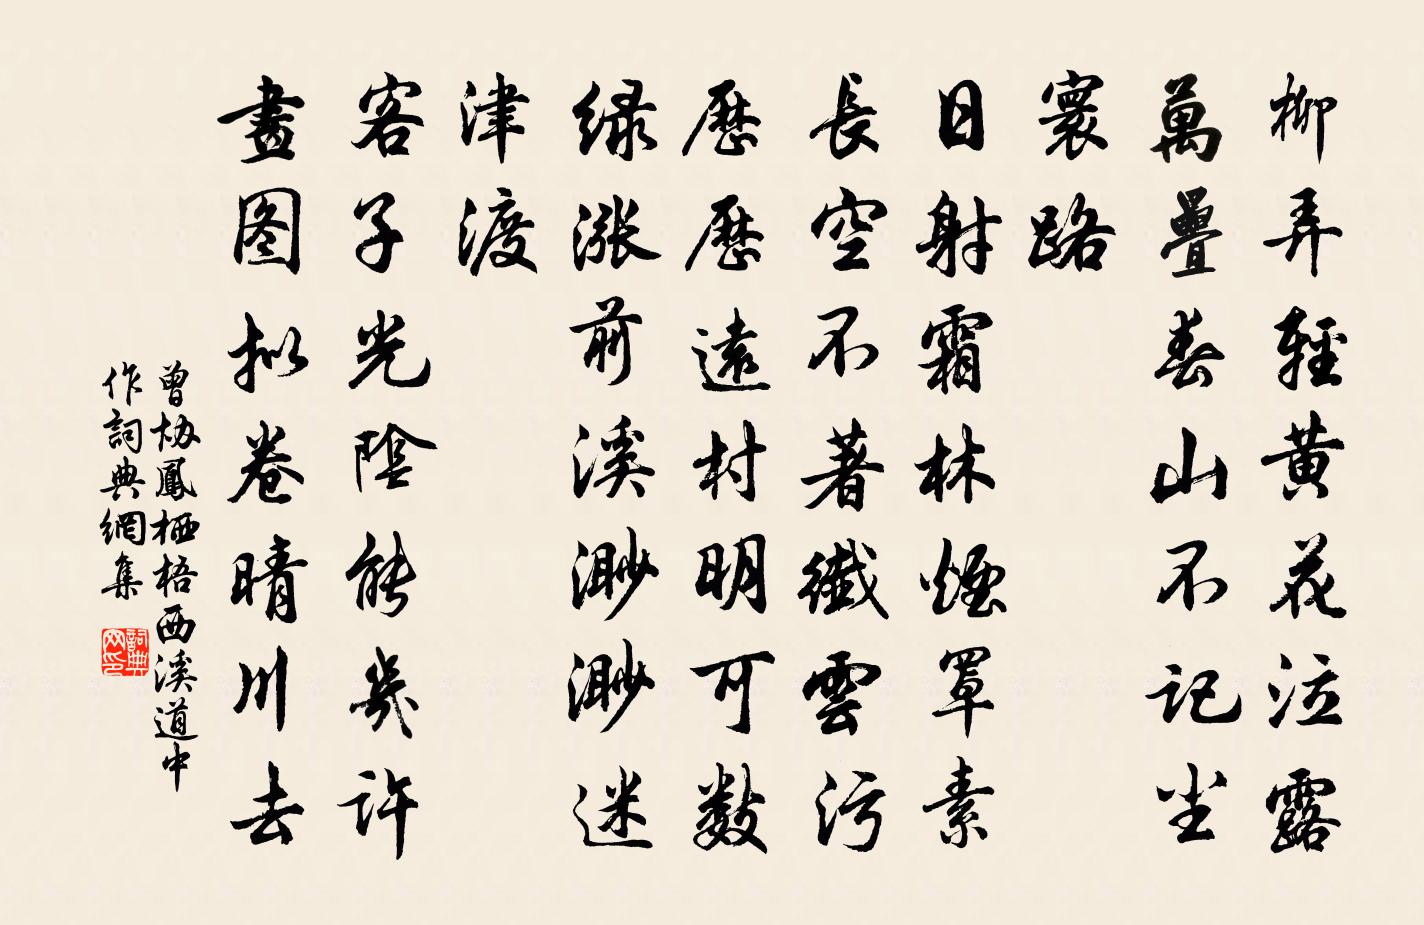 柳弄輕黃花泣露
萬疊春山不記尘
寰路
日射霜林煙罩素
長空不著纖雲污
歷歷遠村明可数
绿漲前溪渺渺迷
津渡
客子光陰能幾許
畫图拟卷晴川去
曾协鳳栖梧西溪道中
作詞典網集
詞典网印